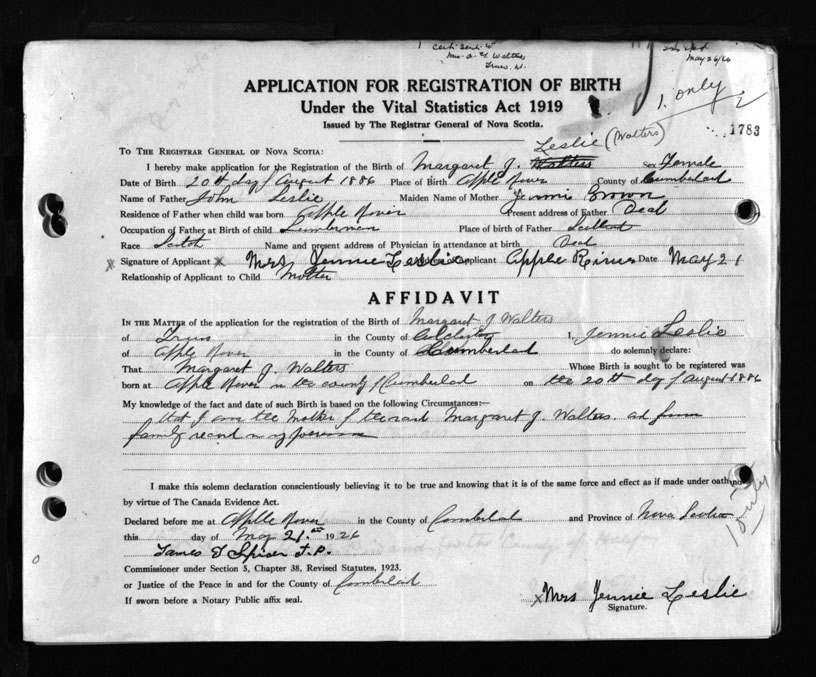 Mrs. A. Y. Walters
Truro, N.
May 26/26
1. only
APPLICATION FOR REGISTRATION OF BIRTH
Under the Vital Statistics Act 1919
Issued by The Registrar General of Nova Scotia.
1783
Leslie (Walters)
To The Registrar General of Nova Scotia:
I hereby make application for the Registration of the Birth of Margaret J. Walters Sex Female
Date of Birth 20th day of August 1886 Place of Birth Apple River County of Cumberland
Name of Father John Leslie Maiden Name of Mother Jennie Brown
Residence of Father when child was born Apple River Present address of Father Dead
Occupation of Father at Birth of child Lumberman Place of birth of Father Scotland
Race Scotch Name and present address of Physician in attendance at birth Dead
X Signature of Applicant x Mrs Jennie Leslie Address of Applicant Apple River Date May 21
Relationship of Applicant to Child Mother
AFFIDAVIT
In the Matter of the application for the registration of the Birth of Margaret J Walters
of Truro in the County of Colchester I, Jennie Leslie
of Apple River in the County of Cumberland do solemnly declare:
That Margaret J. Walters Whose Birth is sought to be registered was
born at Apple River in the county of Cumberland on the 20th day of August 1886
My knowledge of the fact and date of such Birth is based on the following Circumstances:—
that I am the Mother of the said Margaret J. Walters. and from
family record in my possession
I make this solemn declaration conscientiously believing it to be true and knowing that it is of the same force and effect as if made under oath and
by virtue of The Canada Evidence Act.
Declared before me at Apple River in the County of Cumberland and Province of Nova Scotia
this day of May 21st 1926
James T Spicer J.P.
Commissioner under Section 5, Chapter 38, Revised Statutes, 1923.
or Justice of the Peace in and for the County of Cumberland
If sworn before a Notary Public affix seal.
x Mrs Jennie Leslie
Signature.
1 only